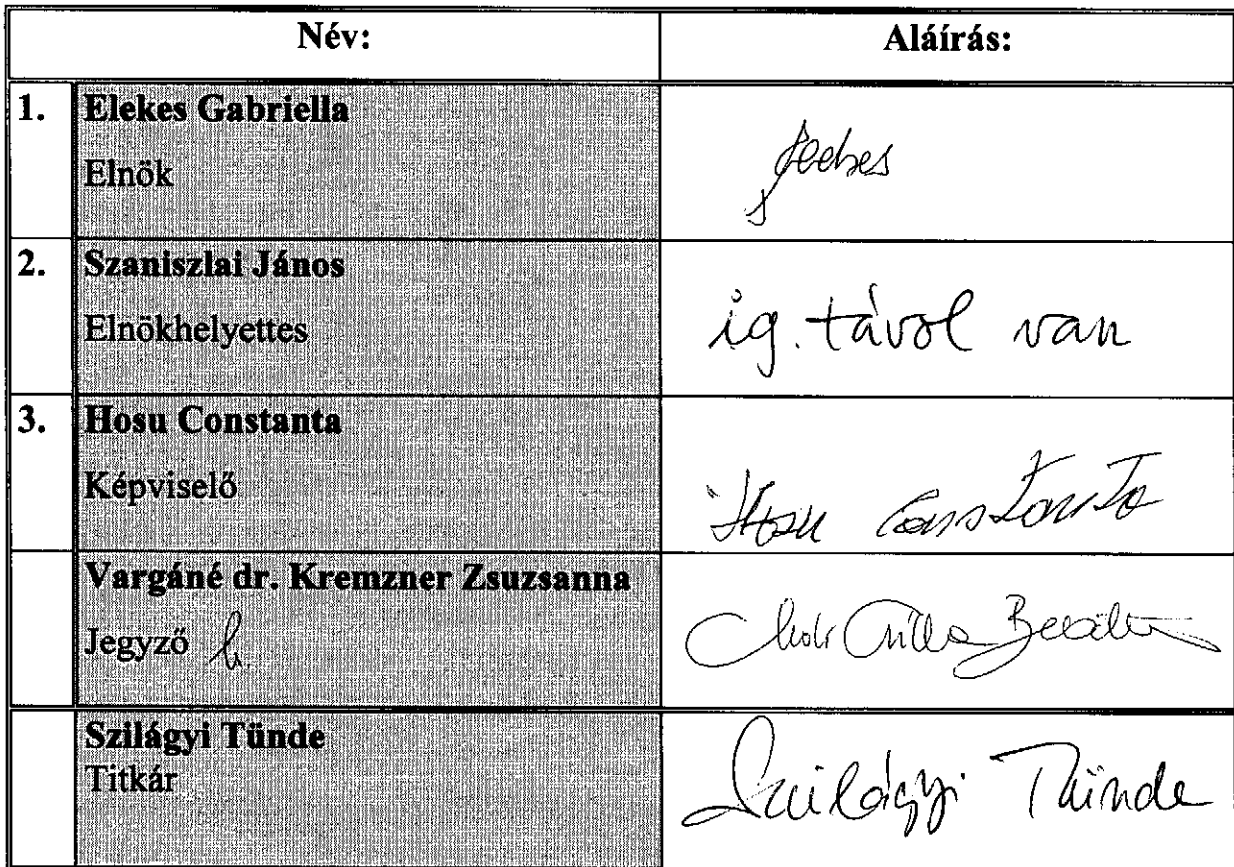 Név: Aláírás:
1. Elekes Gabriella
Elnök
Elekes
2. Szaniszlai János
Elnökhelyettes
ig. távol van
3. Hosu Constanta
Képviselő
Hosu Constanta
Vargáné dr. Kremzner Zsuzsanna
Jegyző h.
Szilágyi Tünde
Titkár
Szilágyi Tünde